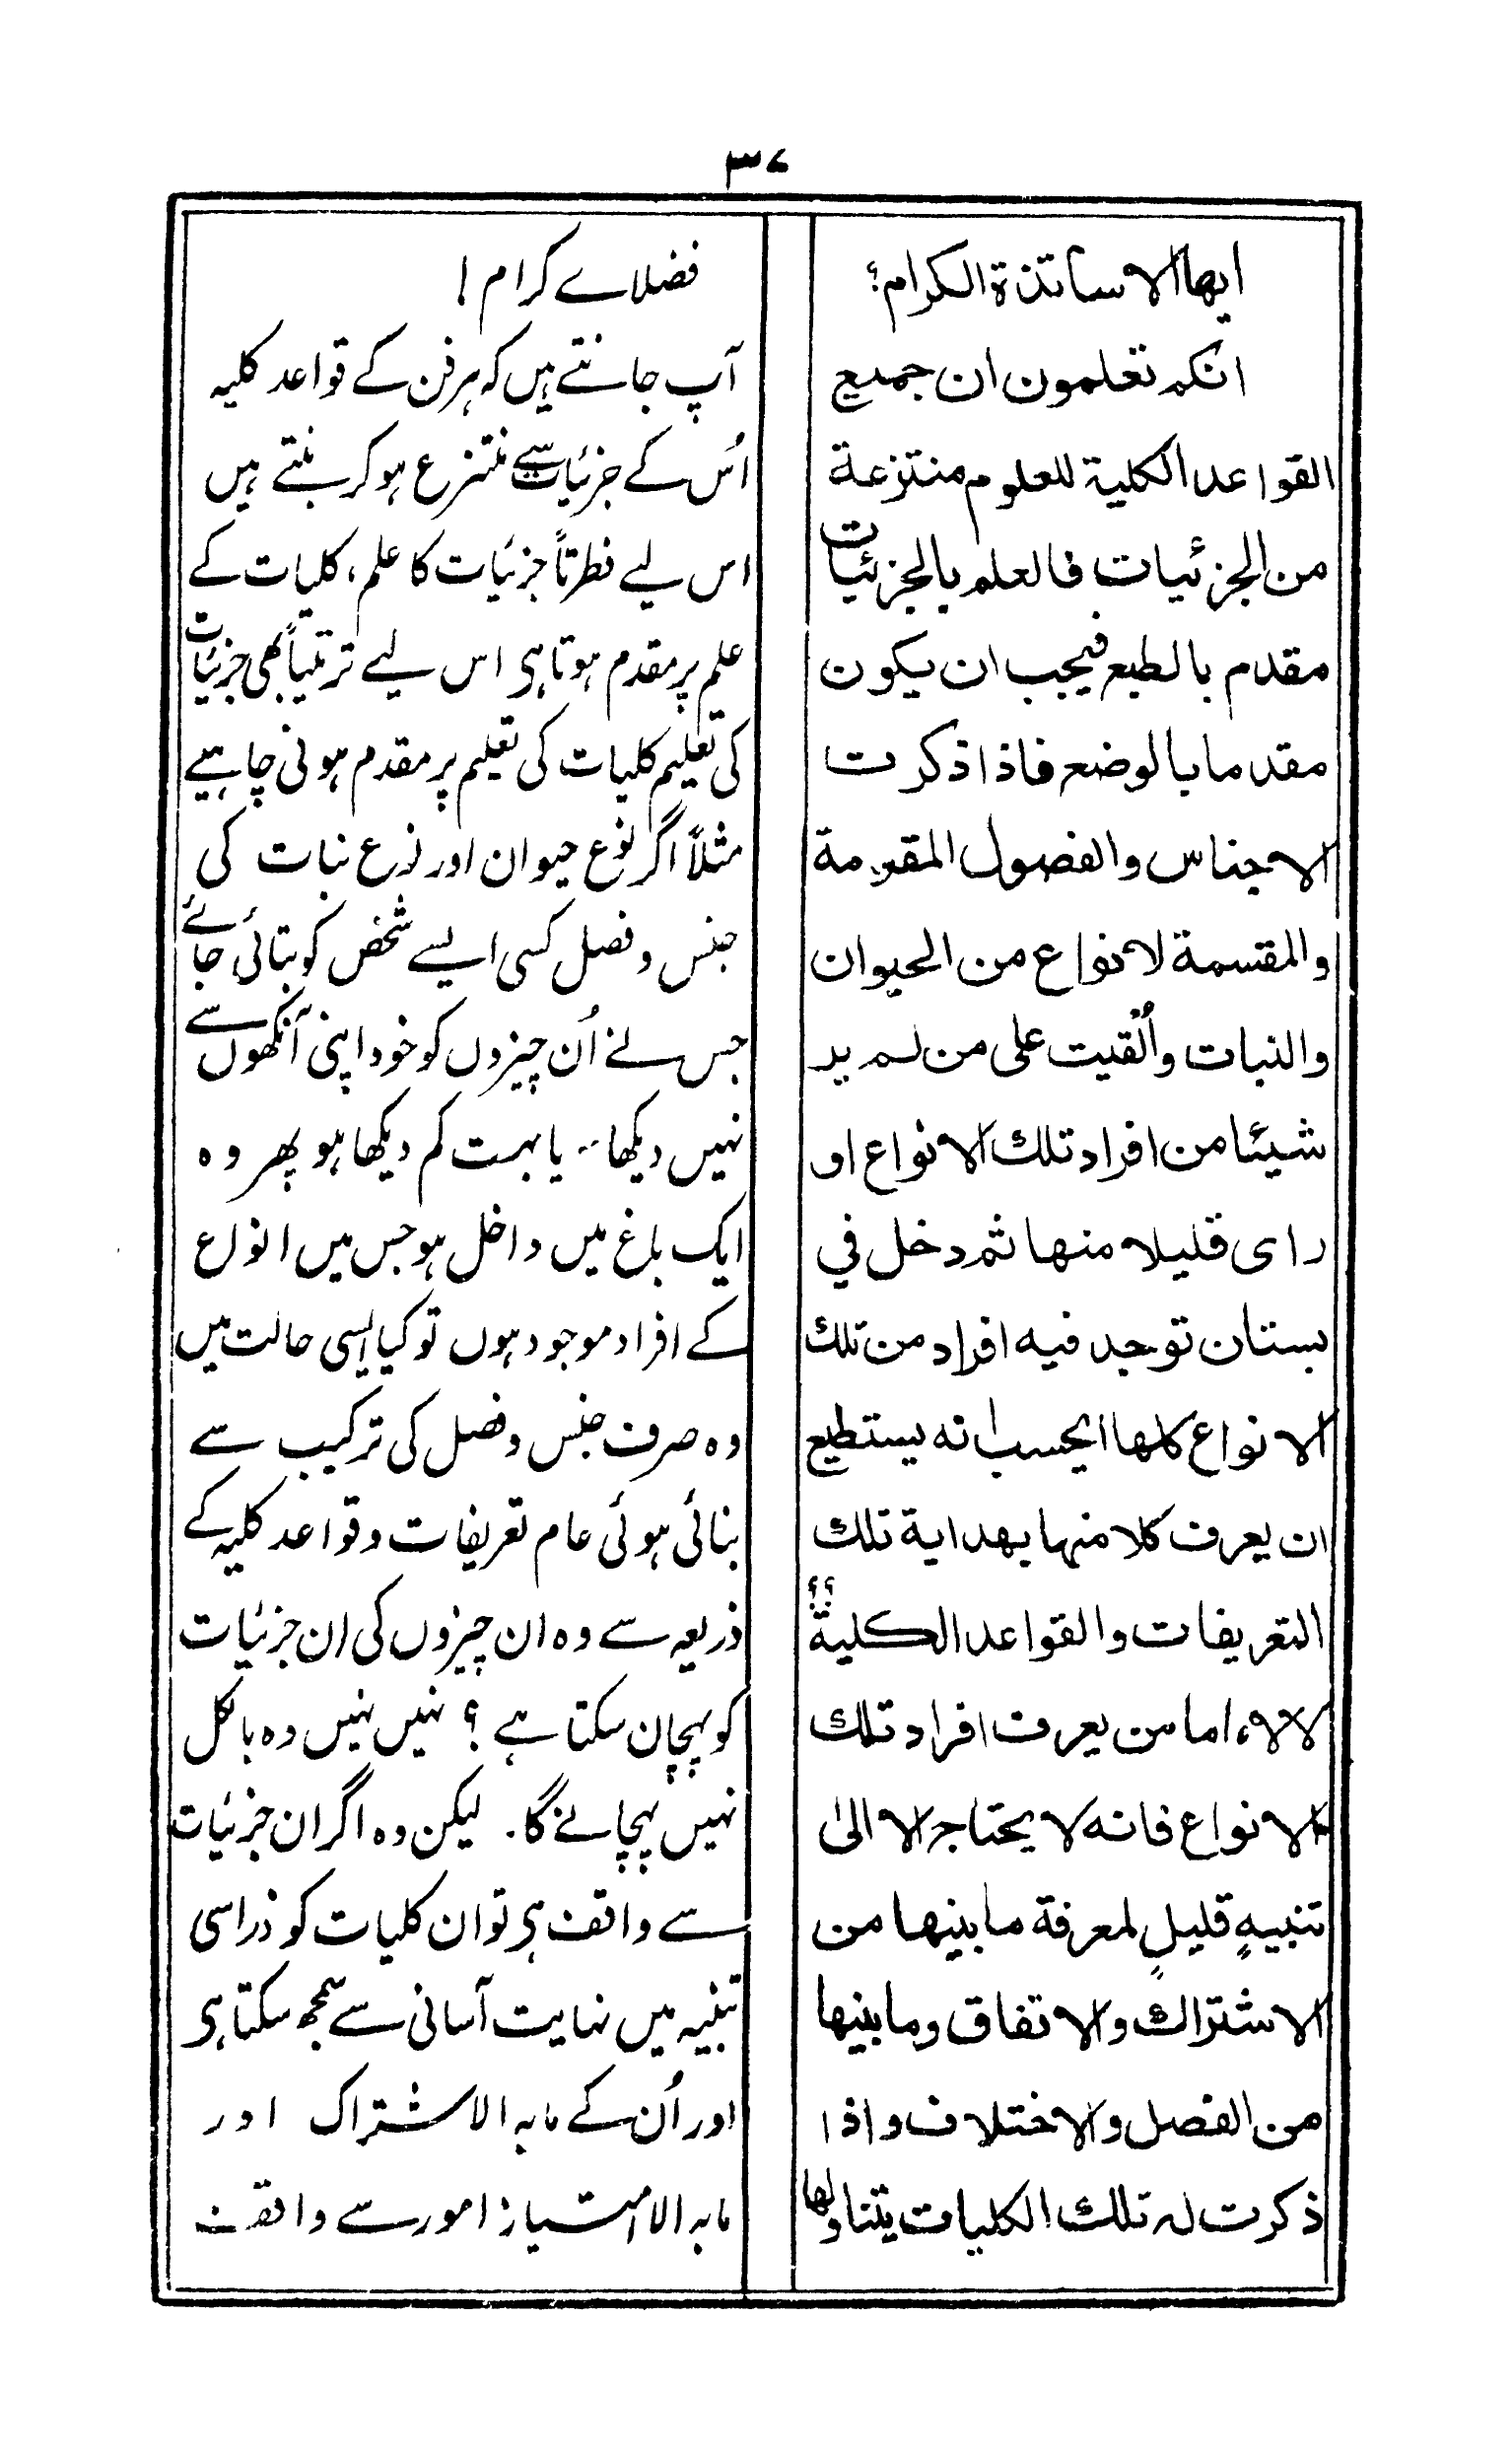 ٣٧
ایها الاساتذة الکرام؛
انکم تعلمون ان جمیع
القواعد الکلیة للعلوم منتزعة
من الجزئیات فالعلم بالجزئیات
مقدم بالطبع فیجب ان یکون
مقدما بالوضع فاذا ذکرت
الاجناس والفصول المقومة
والمقسمة لانواع من الحیوان
والنبات وألقیت علی من لم یر
شیئا من افراد تلك الانواع او
رای قلیلا منها ثم دخل في
بستان توجد فیه افراد من تلك
الانواع کلها ایحسب انه یستطیع
ان یعرف کلا منها بهدایة تلك
التعریفات والقواعد الکلیة؟؟
لالا، اما من یعرف افراد تلك
الانواع فانه لا یحتاج الا الیٰ
تنبیهٍ قلیلٍ لمعرفة ما بینها من
الاشتراك والاتفاق وما بینها
من الفصل والاختلاف واذا
ذکرت له تلك الکلیات یتناولها
فضلاے کرام!
آپ جانتے ہیں کہ ہر فن کے قواعد کلیہ
اُس کے جزئیات سے منتزع ہو کر بنتے ہیں
اس لیے فطرتاً جزئیات کا علم، کلیات کے
علم پر مقدم ہوتا ہی اس لیے ترتیباً بھی جزئیات
کی تعلیم کلیات کی تعلیم پر مقدم ہونی چاہیے
مثلاً اگر نوع حیوان اور نوع نبات کی
جنس و فصل کسی ایسے شخص کو بتائی جائے
جس نے اُن چیزوں کو خود اپنی آنکھوں سے
نہیں دیکھا۔ یا بہت کم دیکھا ہو پھر وہ
ایک باغ میں داخل ہو جس میں انواع
کے افراد موجود ہوں تو کیا ایسی حالت میں
وہ صرف جنس و فصل کی ترکیب سے
بنائی ہوئی عام تعریفات و قواعد کلیہ کے
ذریعہ سے وہ ان چیزوں کی ان جزئیات
کو پہچان سکتا ہے؟ نہیں نہیں وہ بالکل
نہیں پہچانے گا۔ لیکن وہ اگر ان جزئیات
سے واقف ہی تو ان کلیات کو ذرا سی
تنبیہ میں نہایت آسانی سے سمجھ سکتا ہی
اور اُن کے مابہ الاشتراک اور
مابہ الامتیاز امور سے واقف